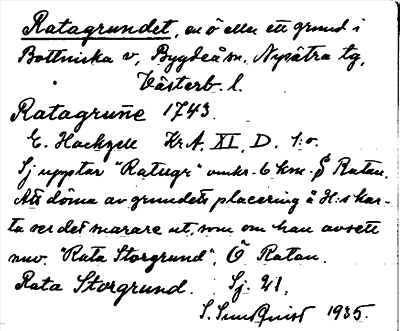 Ratagrundet, en ö eller ett grund i
Bottniska v, Bygdeå sn. Nysätra tg,
Västerb. l.
Ratagrune 1743.
E. Hackzell Kr.A. XI, D. 1:o.
Sj upptar "Ratugr" omkr. 6 km. S Ratan.
Att döma av grundets placering å H:s kar-
ta ser det snarare ut, som om han avsett
nuv. "Rata Storgrund", Ö Ratan.
Rata Storgrund. Sj. 21.
S. Sundqvist 1935.